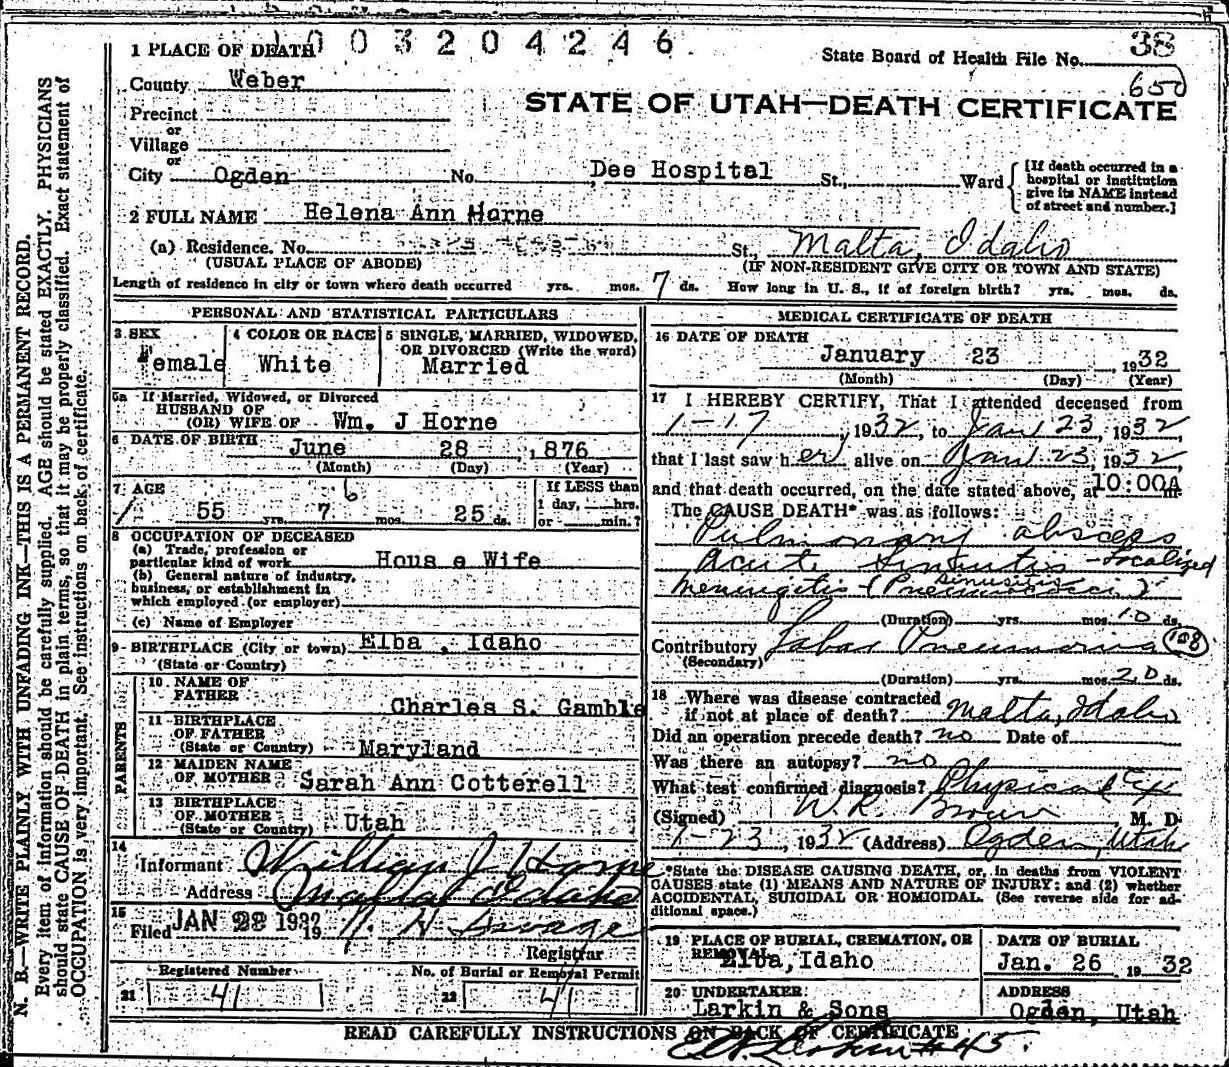 1003204246
1 PLACE OF DEATH
State Board of Health File No. 38
650
County Weber
STATE OF UTAH—DEATH CERTIFICATE
Precinct
or
Village
or
City Ogden No. Dee Hospital St., Ward
[If death occurred in a hospital or institution give its NAME instead of street and number.]
2 FULL NAME Helena Ann Horne
(a) Residence. No. St., Malta, Idaho
(USUAL PLACE OF ABODE) (IF NON-RESIDENT GIVE CITY OR TOWN AND STATE)
Length of residence in city or town where death occurred yrs. mos. 7 ds. How long in U. S., if of foreign birth? yrs. mos. ds.
PERSONAL AND STATISTICAL PARTICULARS
3 SEX 4 COLOR OR RACE 5 SINGLE, MARRIED, WIDOWED, OR DIVORCED (Write the word)
Female White Married
5a If Married, Widowed, or Divorced
HUSBAND OF
(OR) WIFE OF Wm. J Horne
6 DATE OF BIRTH June 28 , 876
(Month) (Day) (Year)
7 AGE 6 If LESS than
55 yrs. 7 mos. 25 ds. 1 day, hrs.
or min.?
8 OCCUPATION OF DECEASED
(a) Trade, profession or
particular kind of work Hous e Wife
(b) General nature of industry,
business, or establishment in
which employed (or employer)
(c) Name of Employer
9 BIRTHPLACE (City or town) Elba , Idaho
(State or Country)
PARENTS
10 NAME OF
FATHER Charles S. Gamble
11 BIRTHPLACE
OF FATHER
(State or Country) Maryland
12 MAIDEN NAME
OF MOTHER Sarah Ann Cotterell
13 BIRTHPLACE
OF MOTHER
(State or Country) Utah
14
Informant William J Horne
Address Malta Idaho
15
Filed JAN 28 1932 19 N. H Savage
Registrar
Registered Number No. of Burial or Removal Permit
21 41 22 41
MEDICAL CERTIFICATE OF DEATH
16 DATE OF DEATH
January 23 , 1932
(Month) (Day) (Year)
17 I HEREBY CERTIFY, That I attended deceased from
1-17, 1932, to Jan 23, 1932,
that I last saw her alive on Jan 23, 1932
and that death occurred, on the date stated above, at 10:00A m.
The CAUSE DEATH* was as follows:
Pulmonary abscess
acute Sinusitis - Localized
sinusitis
Meningitis - (Pneumococci)
(Duration) yrs. mos. 10 ds.
Contributory Lobar Pneumonia 108
(Secondary)
(Duration) yrs. mos. 20 ds.
18 Where was disease contracted
if not at place of death? Malta, Idaho
Did an operation precede death? no Date of
Was there an autopsy? no
What test confirmed diagnosis? Physical Ex
(Signed) W. R. Brown M. D.
1-23, 1932 (Address) Ogden, Utah
*State the DISEASE CAUSING DEATH, or, in deaths from VIOLENT
CAUSES state (1) MEANS AND NATURE OF INJURY; and (2) whether
ACCIDENTAL, SUICIDAL OR HOMICIDAL. (See reverse side for ad-
ditional space.)
19 PLACE OF BURIAL, CREMATION, OR REMOVAL DATE OF BURIAL
Elba, Idaho Jan. 26 19 32
20 UNDERTAKER ADDRESS
Larkin & Sons Ogden, Utah
READ CAREFULLY INSTRUCTIONS ON BACK OF CERTIFICATE
Larkin #45.
N. B.—WRITE PLAINLY WITH UNFADING INK—THIS IS A PERMANENT RECORD.
Every item of information should be carefully supplied. AGE should be stated EXACTLY. PHYSICIANS
should state CAUSE OF DEATH in plain terms, so that it may be properly classified. Exact statement of
OCCUPATION is very important. See instructions on back of certificate.